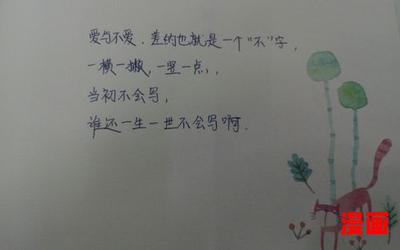 爱与不爱，差的也就是一个“不”字，
一横一撇，一竖一点，
当初不会写，
谁还一生一世不会写啊.
漫画